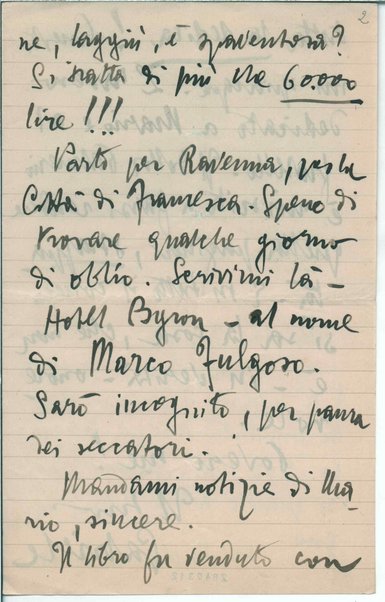 2
ne, laggiù, è spaventosa?
Si tratta di più che 60.000
lire!!!
Parto per Ravenna, per la
Città di Francesca. Spero di
trovare qualche giorno
di oblìo. Scrivimi là –
Hotel Byron – al nome
di Marco Fulgoso.
Sarò incognito, per paura
dei seccatori.
Mandami notizie di Ma-
rio, sincere.
Il libro fu venduto con